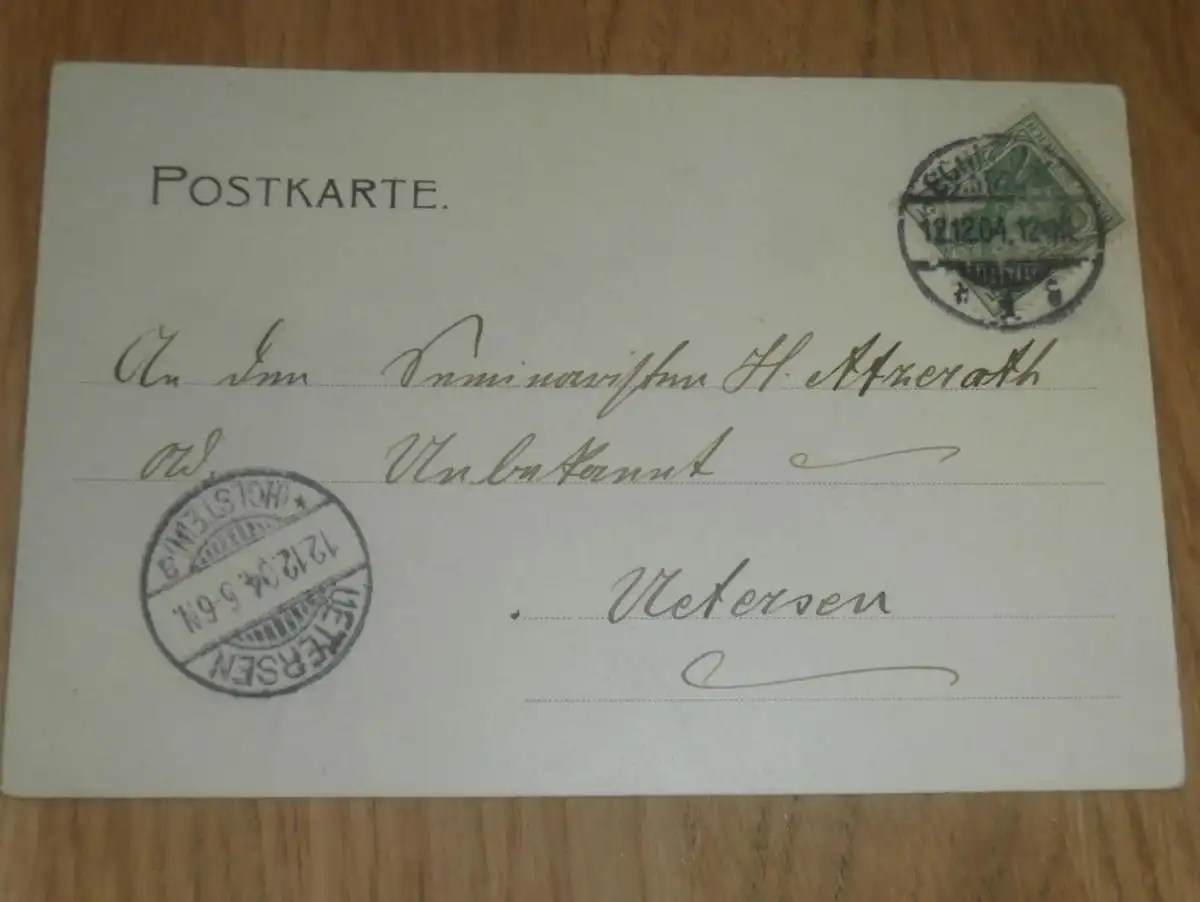 POSTKARTE.
12.12.04. 12-1N.
An den Seminaristen H. Atzerath
Unbekannt
* (HOLSTEIN) a
12.12.04. 5-6N.
UETERSEN
Uetersen